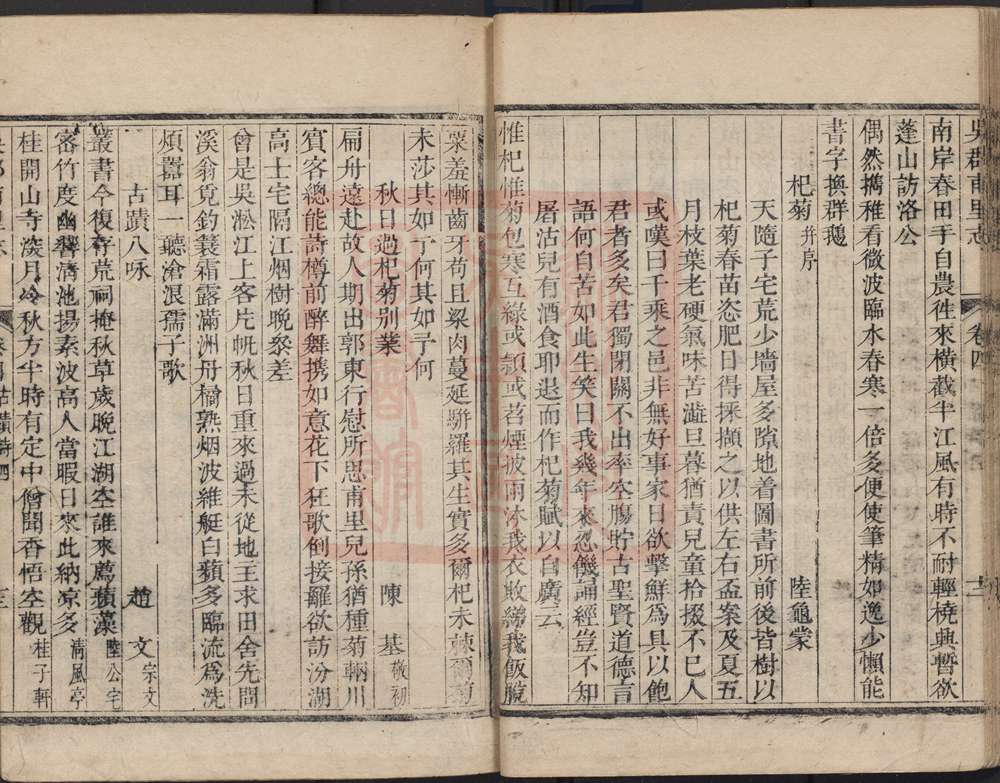 吳郡甫里志 卷四 三
南岸春田手自農徃來橫截半江風有時不耐輕橈興暫欲
蓬山訪洛公
偶然攜稚看微波臨水春寒一倍多便使筆精如逸少懶能
書字換群鵝
杞菊并序 陸龜蒙
天隨子宅荒少墻屋多隙地着圖書所前後皆樹以
杞菊春苗恣肥日得採擷之以供左右盃案及夏五
月枝葉老硬氣味苦澁旦暮猶責兒童拾掇不巳人
或嘆曰千乘之邑非無好事家日欲擊鮮爲具以飽
君者多矣君獨閉關不出率空膓貯古聖賢道德言
語何自苦如此生笑曰我幾年來忍饑誦經豈不知
屠沽兒有酒食耶退而作杞菊賦以自廣云
惟杞惟菊包寒互綠或頴或苕煙披雨沐我衣敗綈我飯脫
粟羞慚齒牙苟且梁肉蔓延駢羅其生實多爾杞未棘爾菊
未莎其如予何其如予何
秋日過杞菊別業 陳基敬初
扁舟遠赴故人期出郭東行慰所思甫里兒孫猶種菊輞川
賓客總能詩樽前醉舞携如意花下狂歌倒接䍦欲訪汾湖
高士宅隔江烟樹晚叅差
曾是吳淞江上客片帆秋日重來過未從地主求田舍先問
溪翁覓釣蓑霜露滿洲丹橘熟烟波維艇白蘋多臨流爲洗
煩囂耳一聽滄浪孺子歌
古蹟八咏 趙文宗文
叢書今復存荒祠掩秋草歲晚江湖空誰來薦蘋藻 陸公宅
密竹度幽響清池揚素波高人當暇日來此納凉多 清風亭
桂開山寺深月冷秋方半時有定中僧聞香悟空觀 桂子軒